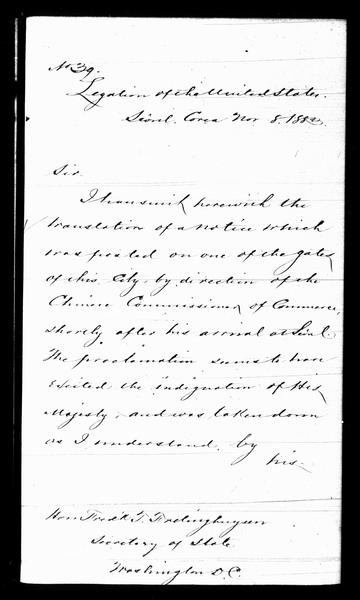 No 39.
Legation of the United States.
Séoul. Corea Nov 8. 188
Sir.
I transmit herewith the
translation of a notice which
was posted on one of the gates
of this City, by direction of the
Chinese Commissioner of Commerce,
shortly after his arrival at Séoul.
The proclamation seems to have
excited the indignation of His
Majesty, and was taken down
as I understand, by
his
Hon. Fredk T. Frelinghuysen
Secretary of State
Washington D.C.